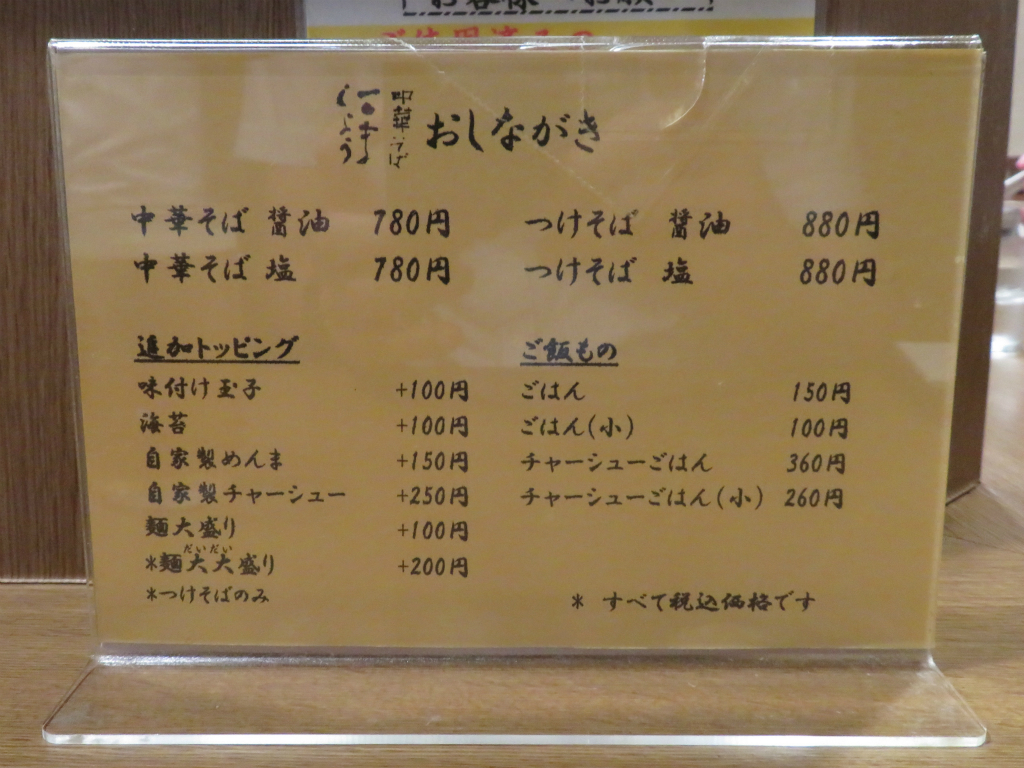 中華そば
おしながき
中華そば 醤油 780円
中華そば 塩 780円
つけそば 醤油 880円
つけそば 塩 880円
追加トッピング
味付け玉子 +100円
海苔 +100円
自家製めんま +150円
自家製チャーシュー +250円
麺大盛り +100円
だいだい
*麺大大盛り +200円
*つけそばのみ
ご飯もの
ごはん 150円
ごはん(小) 100円
チャーシューごはん 360円
チャーシューごはん(小) 260円
* すべて税込価格です